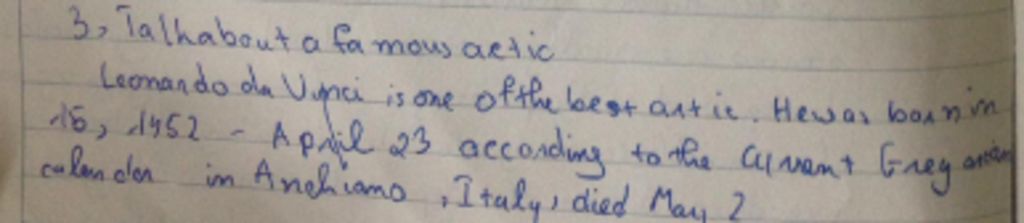 3, Talk about a famous aetic
Leonando da Vynci is one of the best antic. He was bonn in
15, 1452 - April 23 according to the Curvent Gregorian
calendar in Anchiano, Italy, died May 2